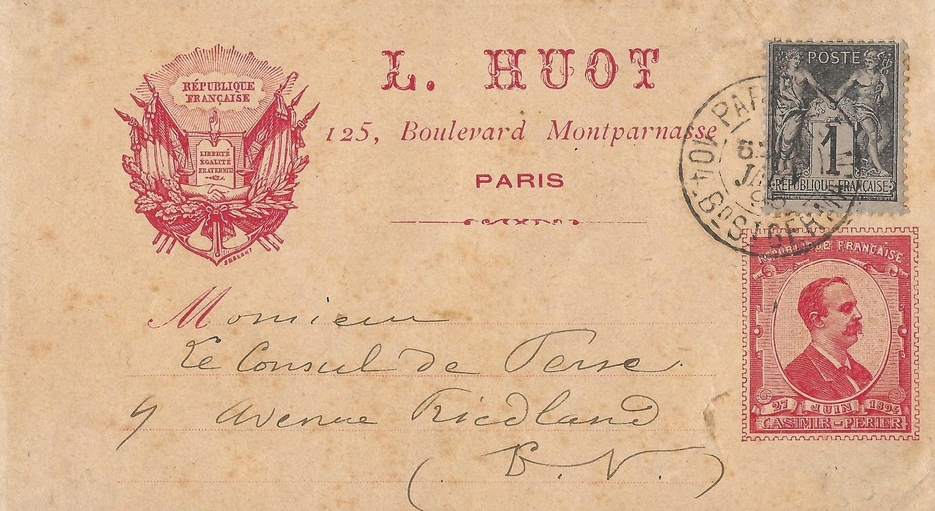 RÉPUBLIQUE
FRANÇAISE
LIBERTÉ
EGALITÉ
FRATERNITÉ
L. HUOT
125, Boulevard Montparnasse
PARIS
POSTE
1
RÉPUBLIQUE FRANÇAISE
PAR
104. Bd St GERMAIN
RÉPUBLIQUE FRANÇAISE
27 JUIN 1894
CASIMIR-PERIER
Monsieur
Le Consul de Perse
9 Avenue Friedland
(E. V.)